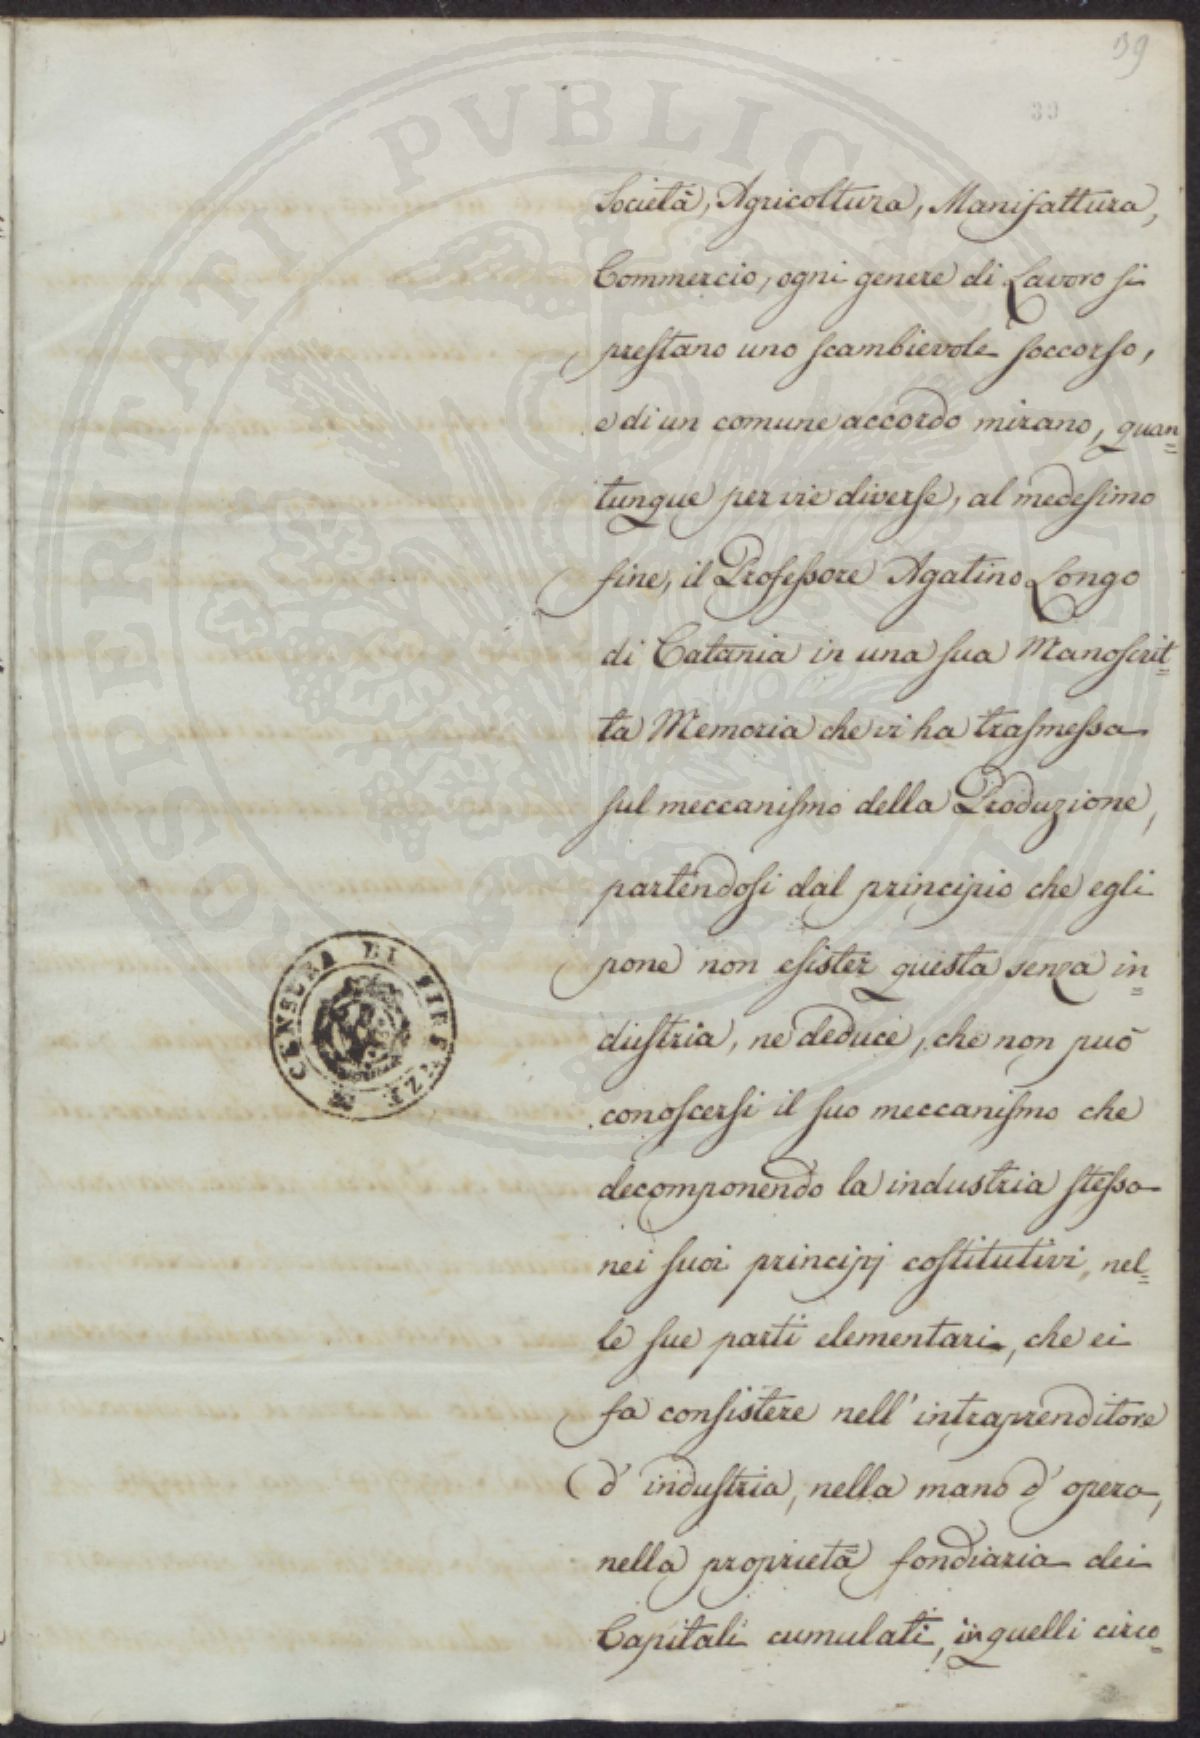 39
39
Società, Agricoltura, Manifattura,
Commercio, ogni genere di Lavoro si
prestano uno scambievole soccorso,
e di un comune accordo mirano, quan=
tunque per vie diverse, al medesimo
fine, il Professore Agatino Longo
di Catania in una sua Manoscrit=
ta Memoria che vi ha trasmessa
sul meccanismo della Produzione,
partendosi dal principio che egli
pone non esister questa senza in=
dustria, ne deduce, che non può
conoscersi il suo meccanismo che
decomponendo la industria stessa
nei suoi principj costitutivi, nel=
le sue parti elementari, che ei
fa consistere nell' intraprenditore
d' industria, nella mano d' opera,
nella proprietà fondiaria dei
Capitali cumulati, in quelli circo=
CENSURA DI FIRENZE
PROSPERITATI PUBLICAE